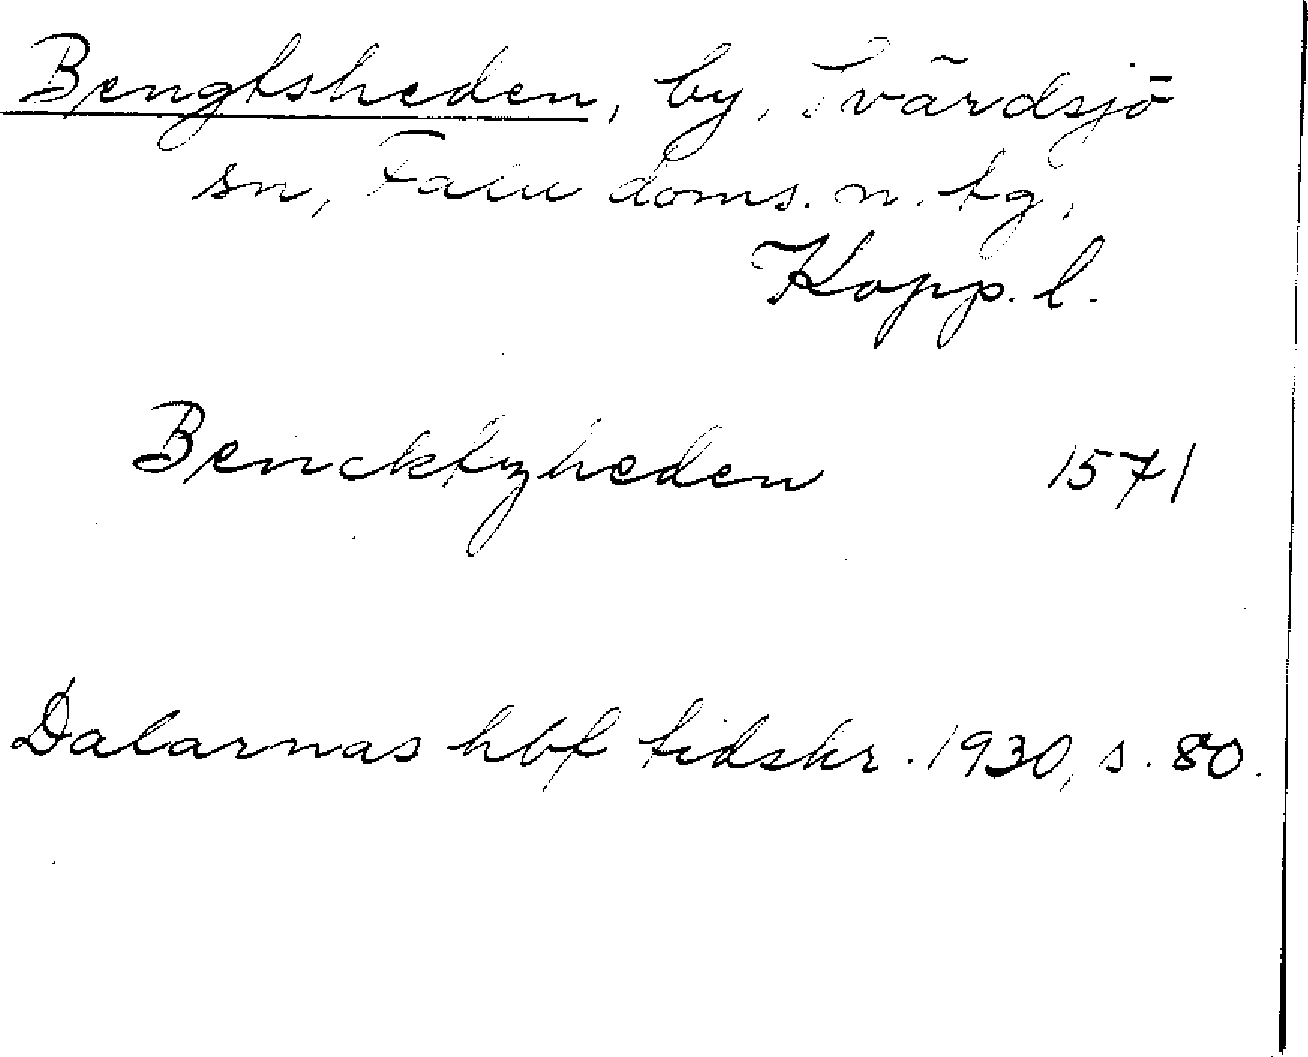 Bengtsheden, by, Svärdsjö
sn, Falu doms. n. tg,
Kopp. l.
Bencktzheden 1571
Dalarnas hbf tidskr. 1930, s. 80.